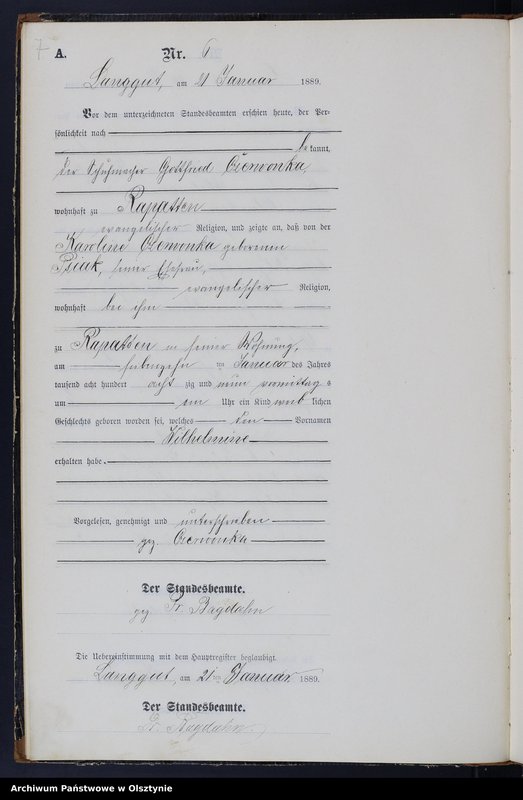 7
A. Nr. 6
Langgut, am 21 Januar 1889.
Vor dem unterzeichneten Standesbeamten erschien heute, der Per-
sönlichkeit nach
be kannt,
der Schuhmacher Gottfried Czerwonka,
wohnhaft zu Rapatten
evangelischer Religion, und zeigte an, daß von der
Karoline Czerwonka geborenen
seiner Ehefrau,
evangelischer Religion,
wohnhaft bei ihm
zu Rapatten in seiner Wohnung,
am siebzehn ten Januar des Jahres
tausend acht hundert acht zig und neun vormittags
um ein Uhr ein Kind weib lichen
Geschlechts geboren worden sei, welches den Vornamen
Wilhelmine
erhalten habe.
Vorgelesen, genehmigt und unterschrieben
gez. Czerwonka
Der Standesbeamte.
gez. Fr. Bagdahn
Die Uebereinstimmung mit dem Hauptregister beglaubigt.
Langgut, am 21 ten Januar 1889.
Der Standesbeamte.
Fr. Bagdahn
Archiwum Państwowe w Olsztynie